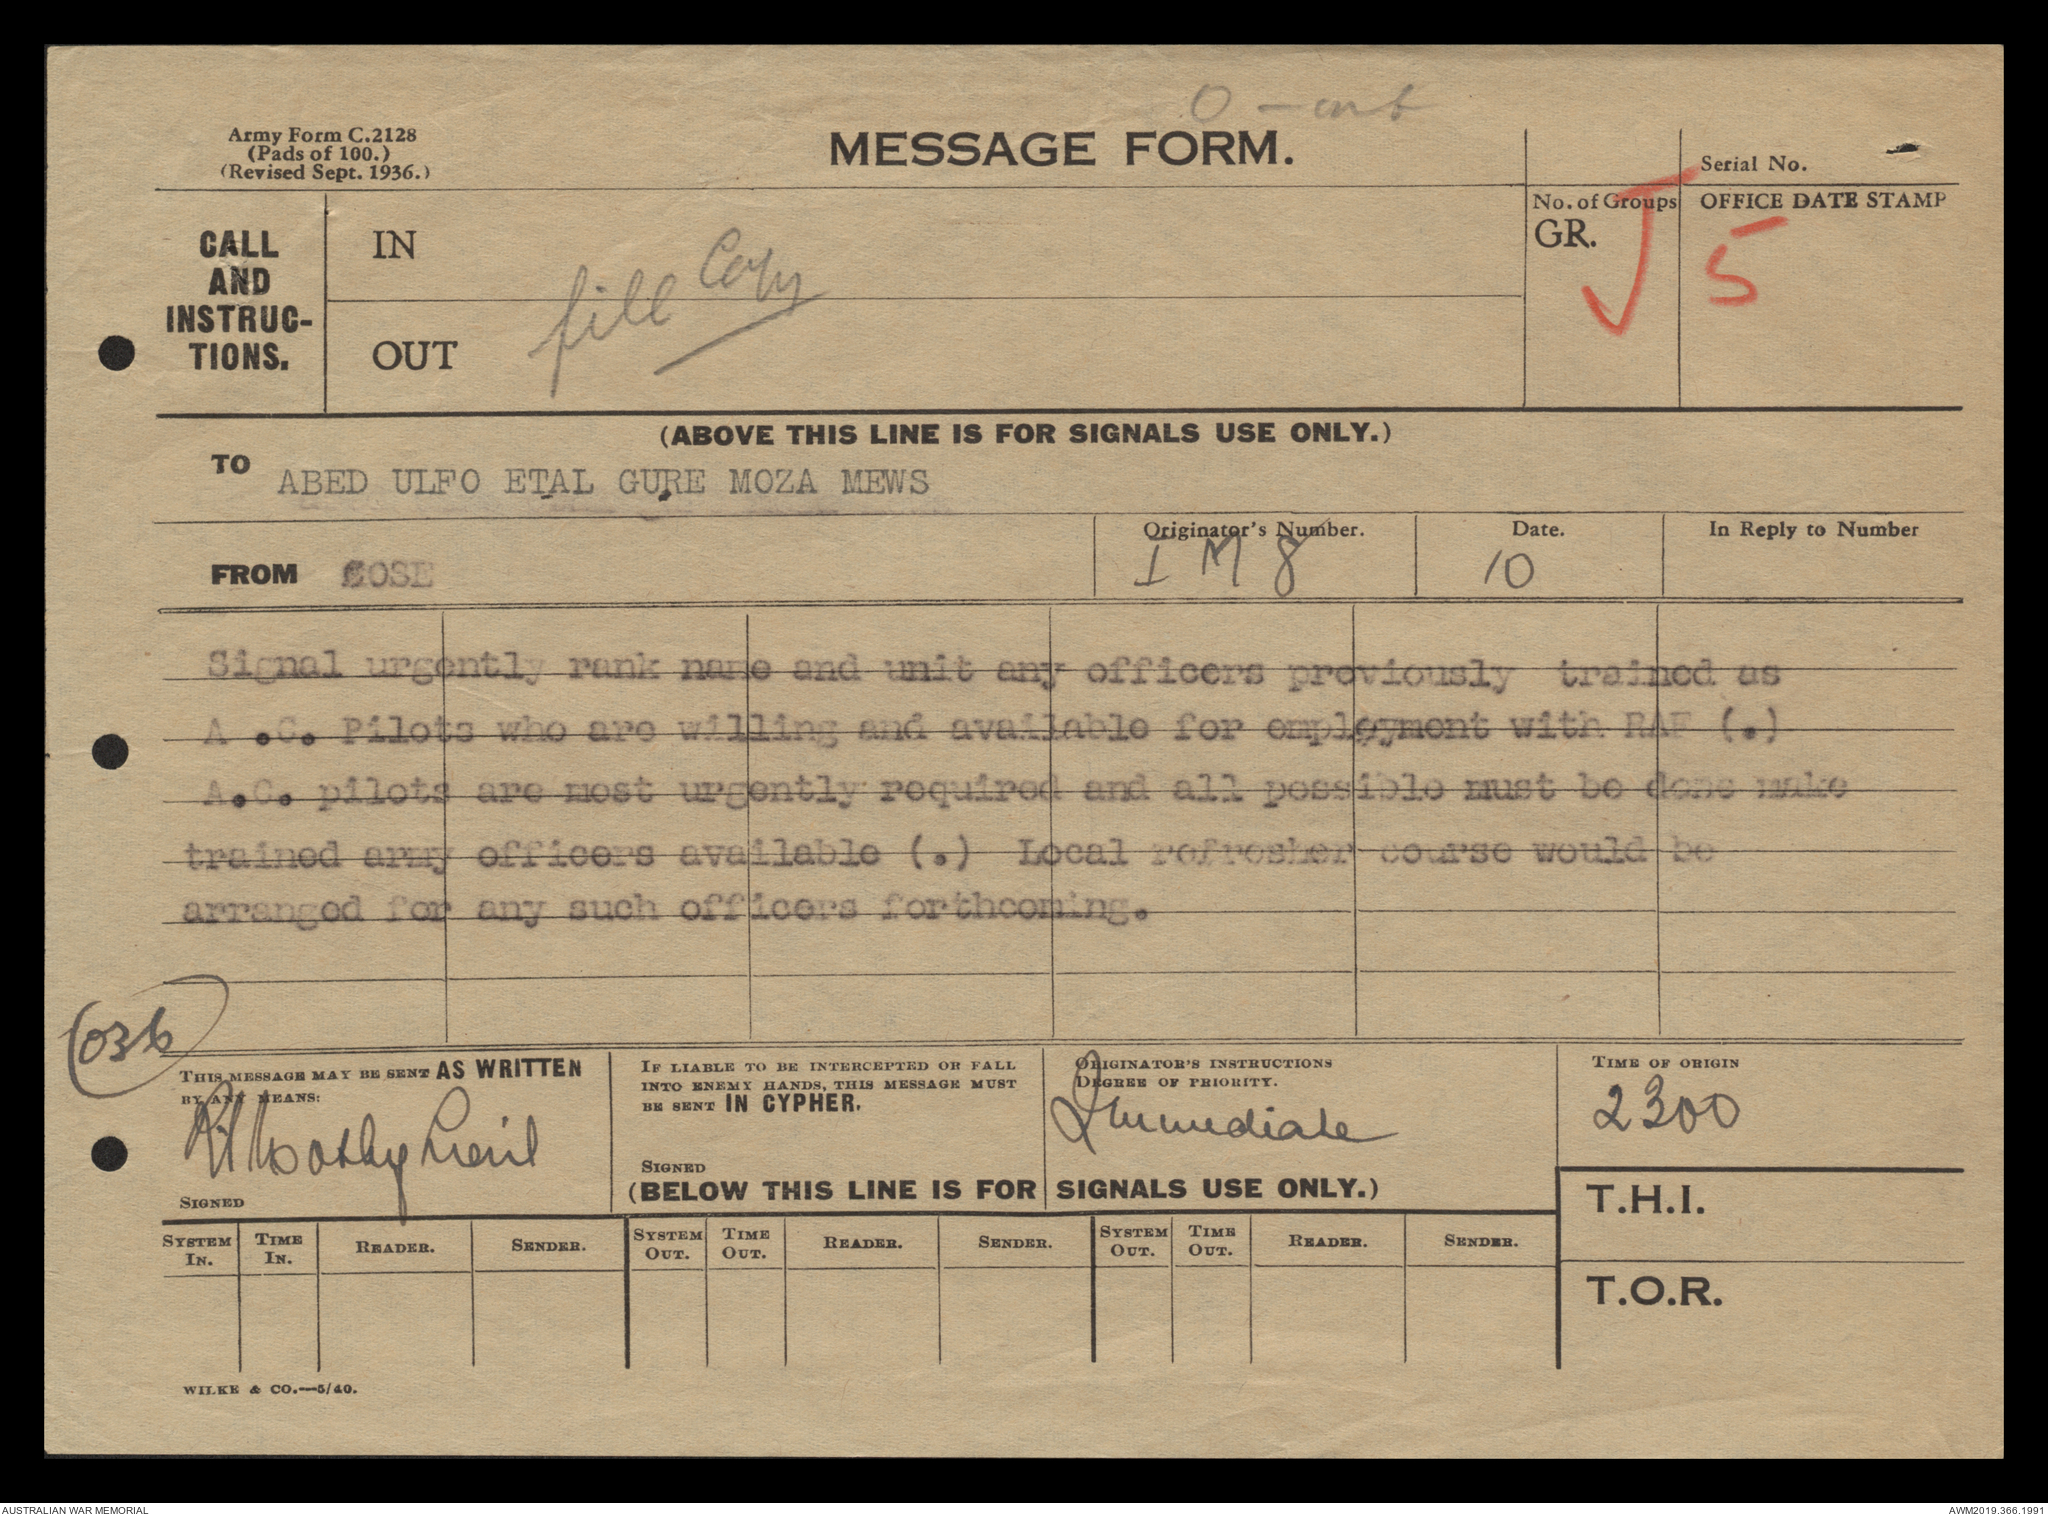 O - out
Army Form C.2128
(Pads of 100.)
(Revised Sept. 1936.)
MESSAGE FORM.
Serial No.
CALL
AND
INSTRUC-
TIONS.
IN
OUT
file Copy
No. of Groups
GR.
OFFICE DATE STAMP
5
(ABOVE THIS LINE IS FOR SIGNALS USE ONLY.)
TO ABED ULFO ETAL GURE MOZA MEWS
FROM COSE
Originator's Number.
I M 8
Date.
10
In Reply to Number
Signal urgently rank name and unit any officers previously trained as
A .C. Pilots who are willing and available for employment with RAF (.)
A.C. pilots are most urgently required and all possible must be done make
trained army officers available (.) Local refresher course would be
arranged for any such officers forthcoming.
(036
THIS MESSAGE MAY BE SENT AS WRITTEN
BY ANY MEANS:
SIGNED
IF LIABLE TO BE INTERCEPTED OR FALL
INTO ENEMY HANDS, THIS MESSAGE MUST
BE SENT IN CYPHER.
SIGNED
ORIGINATOR'S INSTRUCTIONS
DEGREE OF PRIORITY.
Immediate
TIME OF ORIGIN
2300
(BELOW THIS LINE IS FOR SIGNALS USE ONLY.)
T.H.I.
T.O.R.
SYSTEM IN.
TIME IN.
READER.
SENDER.
SYSTEM OUT.
TIME OUT.
READER.
SENDER.
SYSTEM OUT.
TIME OUT.
READER.
SENDER.
WILKE & CO.—5/40.
AUSTRALIAN WAR MEMORIAL
AWM2019.366.1991